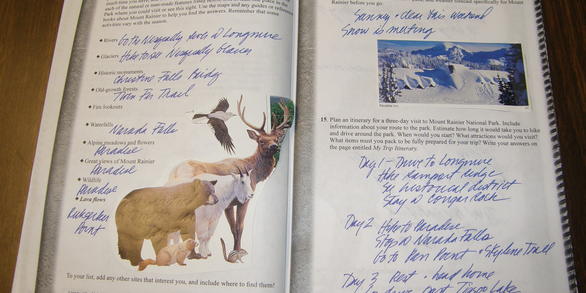 Park where you could visit or see this sight. Use the maps and any guides or reference
books about Mount Rainier to help you find the answers. Remember that some
• Rivers Go to Nisqually at Longmire
• Glaciers Hike to see Nisqually Glacier
• Historic monuments
Christine Falls Bridge
• Old-growth forests
Twin Fir Trail
• Fire lookouts
• Waterfalls
Narada Falls
• Alpine meadows and flowers
Paradise
• Great views of Mount Rainier
Paradise
• Wildlife
Paradise
• Lava flows
Ricksecker
Point
To your list, add any other sites that interest you, and include where to find them!
Rainier before you go: weather forecast specifically for Mount
Sunny + clear this weekend
Snow is melting
15. Plan an itinerary for a three-day visit to Mount Rainier National Park. Include
information about your route to the park. Estimate how long it would take you to hike
and drive around the park. When would you start? What attractions would you visit?
What items must you pack to be fully prepared for your trip? Write your answers on
the page entitled My Trip Itinerary.
Day 1 - Drive to Longmire
Hike Rampart Ridge
See historical district
Stay @ Cougar Rock
Day 2 Hike to Paradise
Stop @ Narada Falls
Go to Pan Point + Skyline Trail
Day 3 Rest + head home
drive past Tipsoo Lake